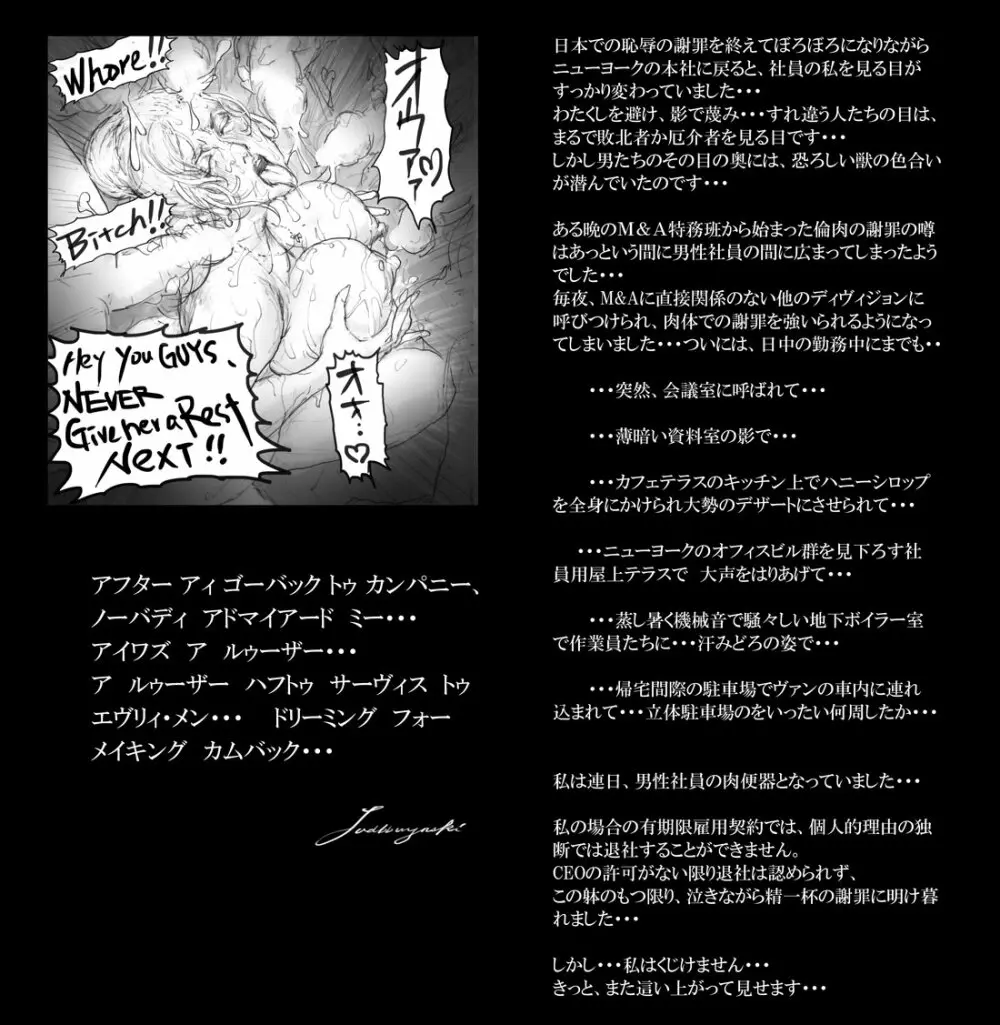 Whore!!
オウアァ♡
Bitch!!
Hey You GUYS、
NEVER
Give her a Rest
NexT!!
オオ…♡
アフター アィ ゴーバック トゥ カンパニー、
ノーバディ アドマイアード ミー・・・
アイワズ ア ルゥーザー・・・
ア ルゥーザー ハフトゥ サーヴィス トゥ
エヴリィ・メン・・・ ドリーミング フォー
メイキング カムバック・・・
日本での恥辱の謝罪を終えてぼろぼろになりながら
ニューヨークの本社に戻ると、社員の私を見る目が
すっかり変わっていました・・・
わたくしを避け、影で蔑み・・・すれ違う人たちの目は、
まるで敗北者か厄介者を見る目です・・・
しかし男たちのその目の奥には、恐ろしい獣の色合い
が潜んでいたのです・・・
ある晩のM＆A特務班から始まった倫肉の謝罪の噂
はあっという間に男性社員の間に広まってしまったよう
でした・・・
毎夜、M&Aに直接関係のない他のディヴィジョンに
呼びつけられ、肉体での謝罪を強いられるようになっ
てしまいました・・・ついには、日中の勤務中にまでも・・
・・・突然、会議室に呼ばれて・・・
・・・薄暗い資料室の影で・・・
・・・カフェテラスのキッチン上でハニーシロップ
を全身にかけられ大勢のデザートにさせられて・・・
・・・ニューヨークのオフィスビル群を見下ろす社
員用屋上テラスで 大声をはりあげて・・・
・・・蒸し暑く機械音で騒々しい地下ボイラー室
で作業員たちに・・・汗みどろの姿で・・・
・・・帰宅間際の駐車場でヴァンの車内に連れ
込まれて・・・立体駐車場のをいったい何周したか・・・
私は連日、男性社員の肉便器となっていました・・・
私の場合の有期限雇用契約では、個人的理由の独
断では退社することができません。
CEOの許可がない限り退社は認められず、
この躰のもつ限り、泣きながら精一杯の謝罪に明け暮
れました・・・
しかし・・・私はくじけません・・・
きっと、また這い上がって見せます・・・